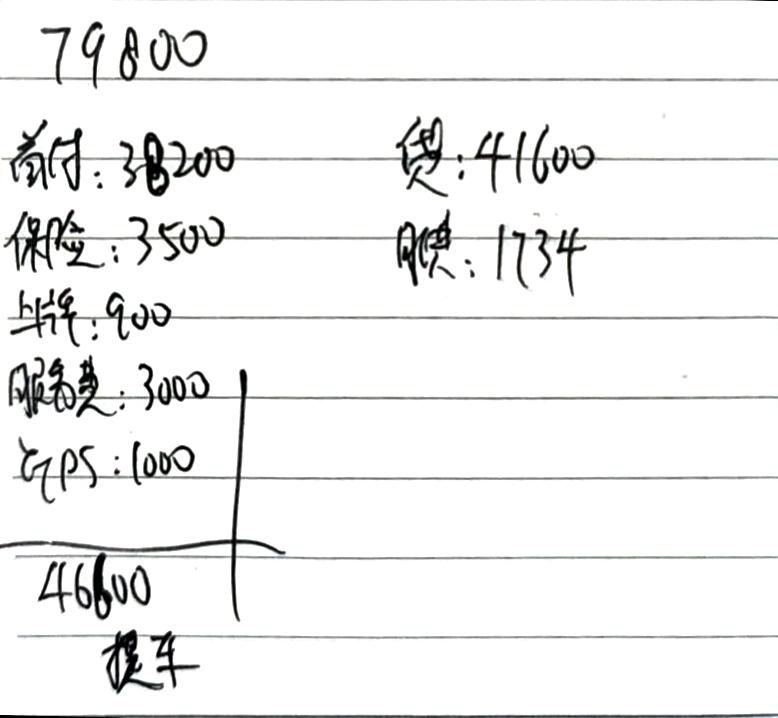 79800
首付：38200
贷：41600
保险：3500
月供：1734
上牌：900
服务费：3000
GPS：1000
46600
提车